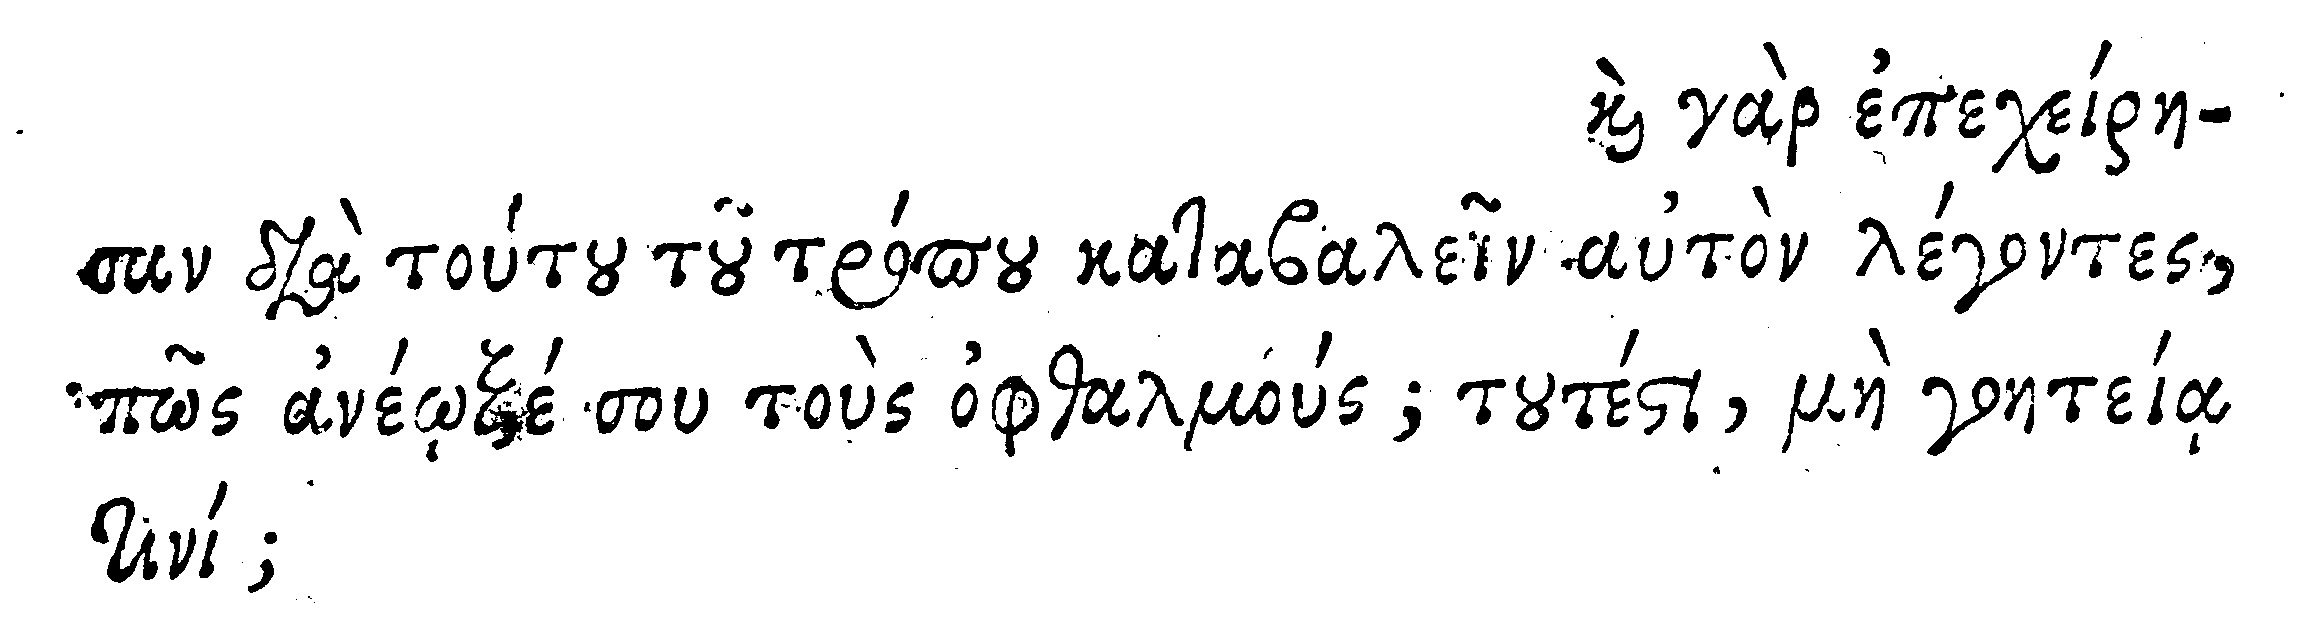 ϗ̀ γὰρ ἐπεχείρη-
σαν διὰ τούτου τοῦ τρόπου καταβαλεῖν αὐτὸν λέγοντες,
πῶς ἀνέῳξέ σου τοὺς ὀφθαλμούς; τουτέστι, μὴ γοητείᾳ
τινί;